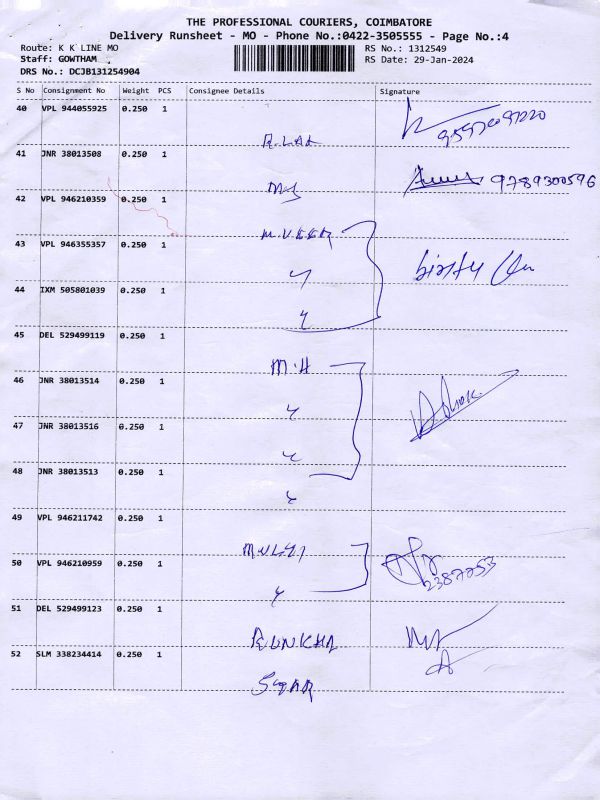 THE PROFESSIONAL COURIERS, COIMBATORE
Delivery Runsheet - MO - Phone No.:0422-3505555 - Page No.:4
Route: K K LINE MO
RS No.: 1312549
Staff: GOWTHAM
RS Date: 29-Jan-2024
DRS No.: DCJB131254904
S No Consignment No Weight PCS Consignee Details Signature
40 VPL 944055925 0.250 1
R.LAL
41 JNR 38013508 0.250 1
9789300596
42 VPL 946210359 0.250 1
M.VEER
43 VPL 946355357 0.250 1
44 IXM 505801039 0.250 1
45 DEL 529499119 0.250 1
M.H
46 JNR 38013514 0.250 1
47 JNR 38013516 0.250 1
48 JNR 38013513 0.250 1
49 VPL 946211742 0.250 1
50 VPL 946210959 0.250 1
2387253
51 DEL 529499123 0.250 1
52 SLM 338234414 0.250 1